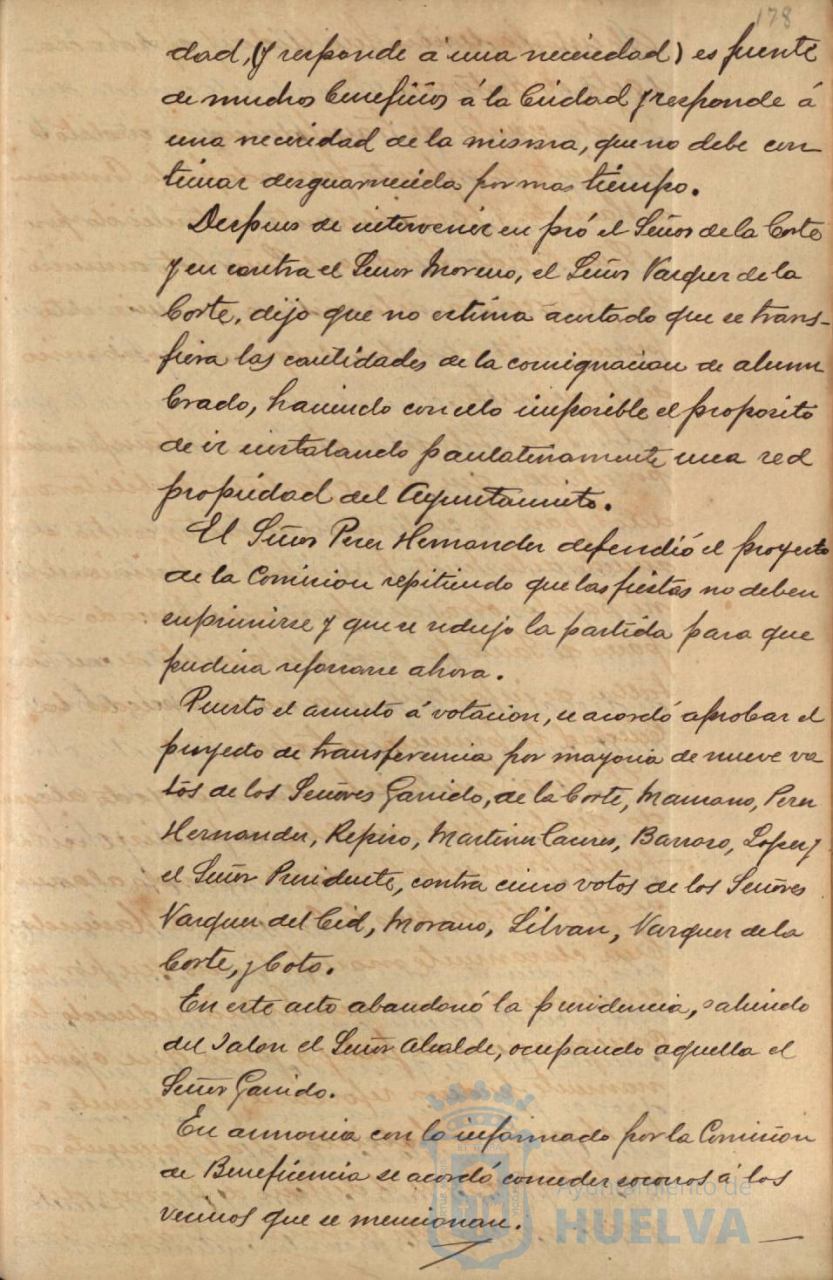 178
dad, (y responde á una necesidad) es fuente
de muchos beneficios á la Ciudad y responde á
una necesidad de la misma, que no debe con
tinuar desguarnecida por mas tiempo.
Despues de intervenir en pró el Señor de la Corte
y en contra el Señor Moreno, el Señor Vazquez de la
Corte, dijo que no estima acertado que se trans-
fiera las cantidades de la consignacion de alum
brado, haciendo con ello imposible el proposito
de ir instalando paulatinamente una red
propiedad del Ayuntamiento.
El Señor Perez Hernandez defendió el proyecto
de la Comision repitiendo que las fiestas no deben
suprimirse y que se redujo la partida para que
pudiera reforzarse ahora.
Puesto el asunto á votacion, se acordó aprobar el
proyecto de transferencia por mayoria de nueve vo
tos de los Señores Garrido, de la Corte, Manzano, Perez
Hernandez, Repiso, Martinez Caceres, Barroso, Lopez y
el Señor Presidente, contra cinco votos de los Señores
Vazquez del Cid, Morano, Silvan, Vazquez de la
Corte, y Coto.
En este acto abandonó la presidencia, saliendo
del Salon el Señor Alcalde, ocupando aquella el
Señor Garrido.
En armonia con lo informado por la Comision
de Beneficencia se acordó conceder socorros á los
vecinos que se mencionan.
Ayuntamiento de
HUELVA